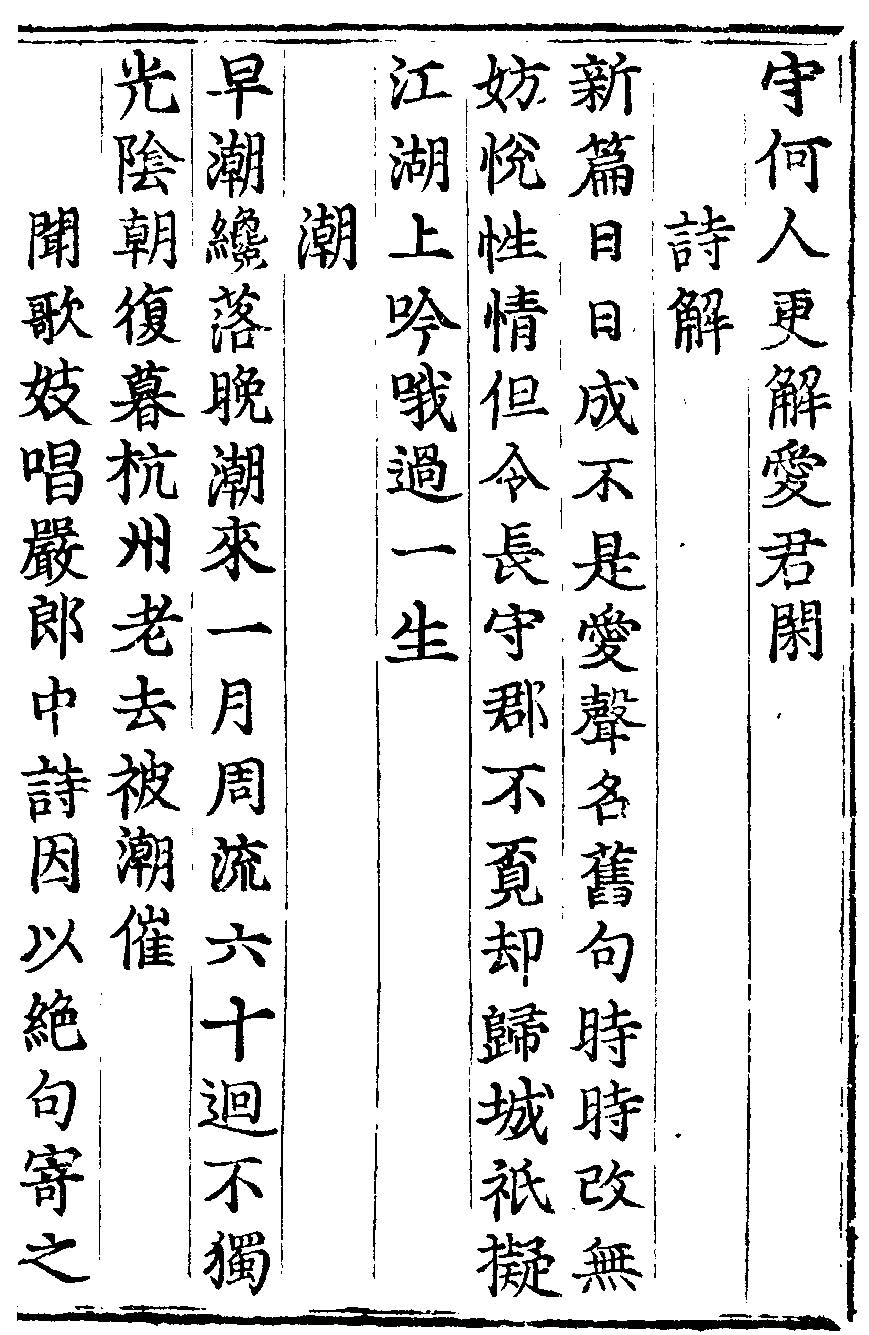 守何人更解愛君閑
詩解
新篇日日成不是愛聲名舊句時時改無
妨恱性情但令長守郡不覔却歸城祇擬
江湖上吟哦過一生
潮
早潮纔落晚潮來一月周流六十迴不獨
光陰朝復暮杭州老去被潮催
聞歌妓唱嚴郎中詩因以絶句寄之